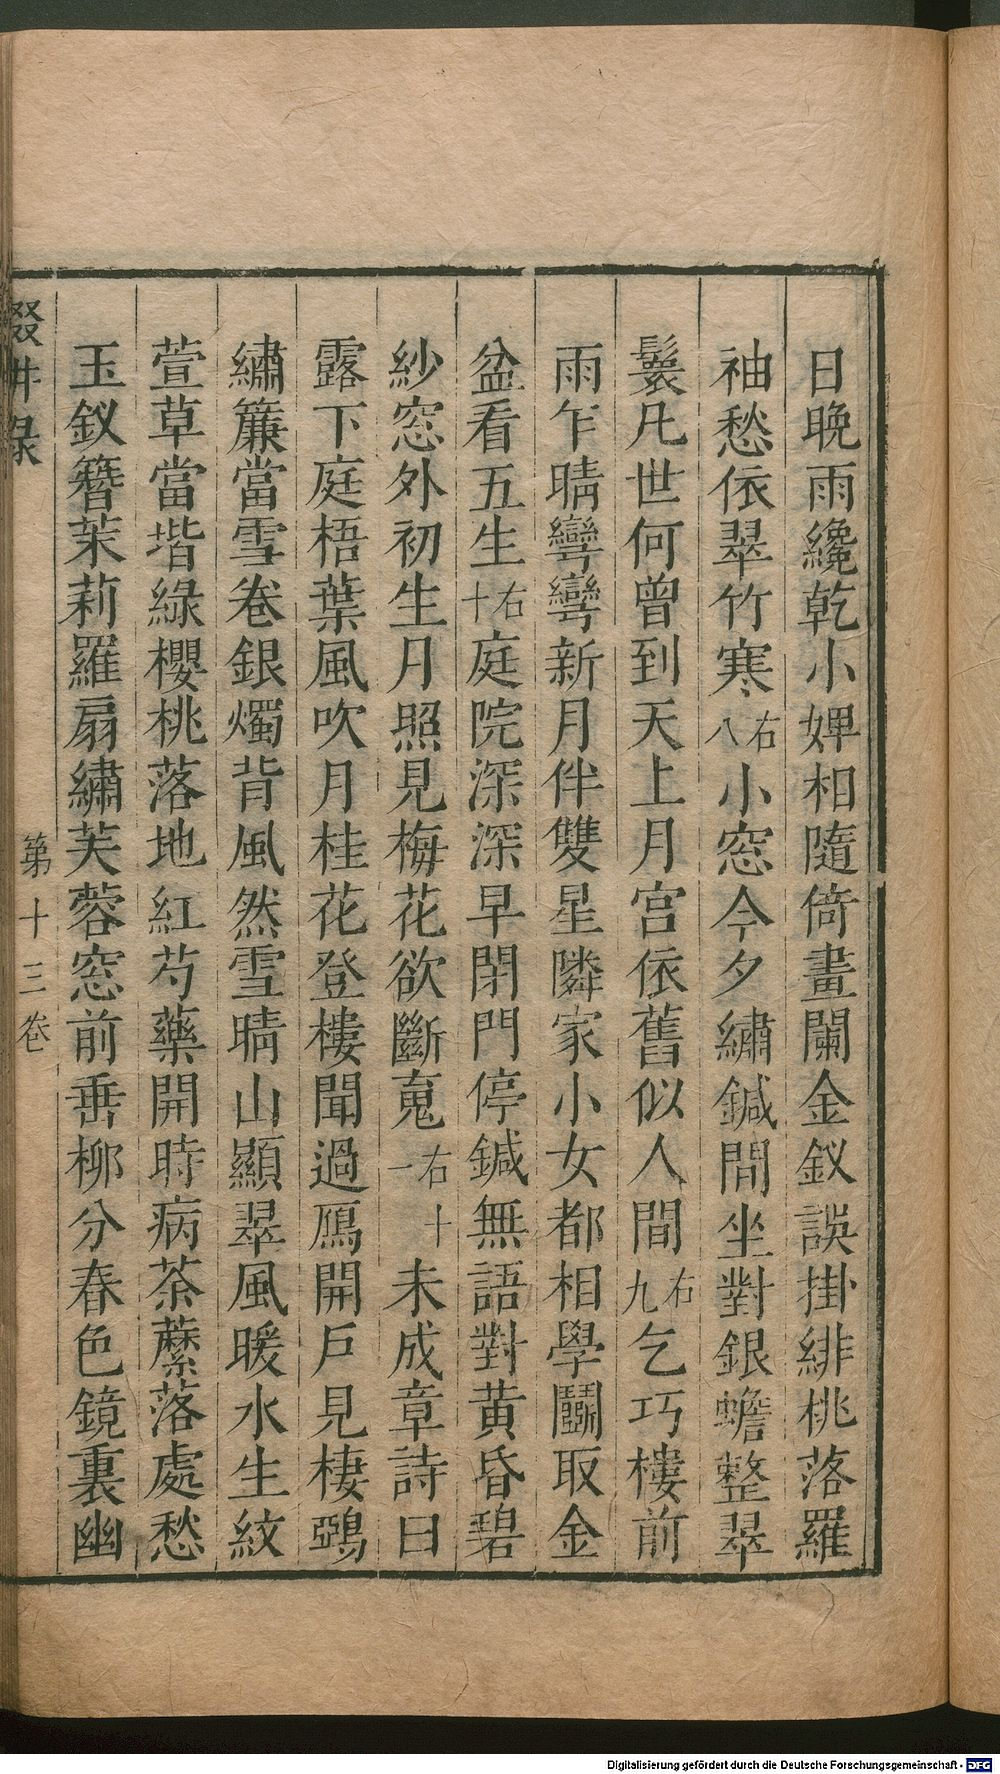 日晚雨纔乾小婢相隨倚畫闌金釵誤掛緋桃落羅
袖愁依翠竹寒右八小窓今夕繡鍼間坐對銀蟾整翠
鬟凡世何曾到天上月宫依舊似人間右九乞巧樓前
雨乍晴彎彎新月伴雙星隣家小女都相學鬭取金
盆看五生右十庭院深深早閉門停鍼無語對黄昏碧
紗窓外初生月照見梅花欲斷䰟右十一未成章詩曰
露下庭梧葉風吹月桂花登樓聞過鴈開戶見棲鵶
繡簾當雪卷銀燭背風然雪晴山顯翠風暖水生紋
萱草當堦綠櫻桃落地紅芍藥開時病荼蘼落處愁
玉釵簪茉莉羅扇繡芙蓉窓前垂柳分春色鏡裏幽
輟畊録
第十三卷
Digitalisierung gefördert durch die Deutsche Forschungsgemeinschaft - DFG